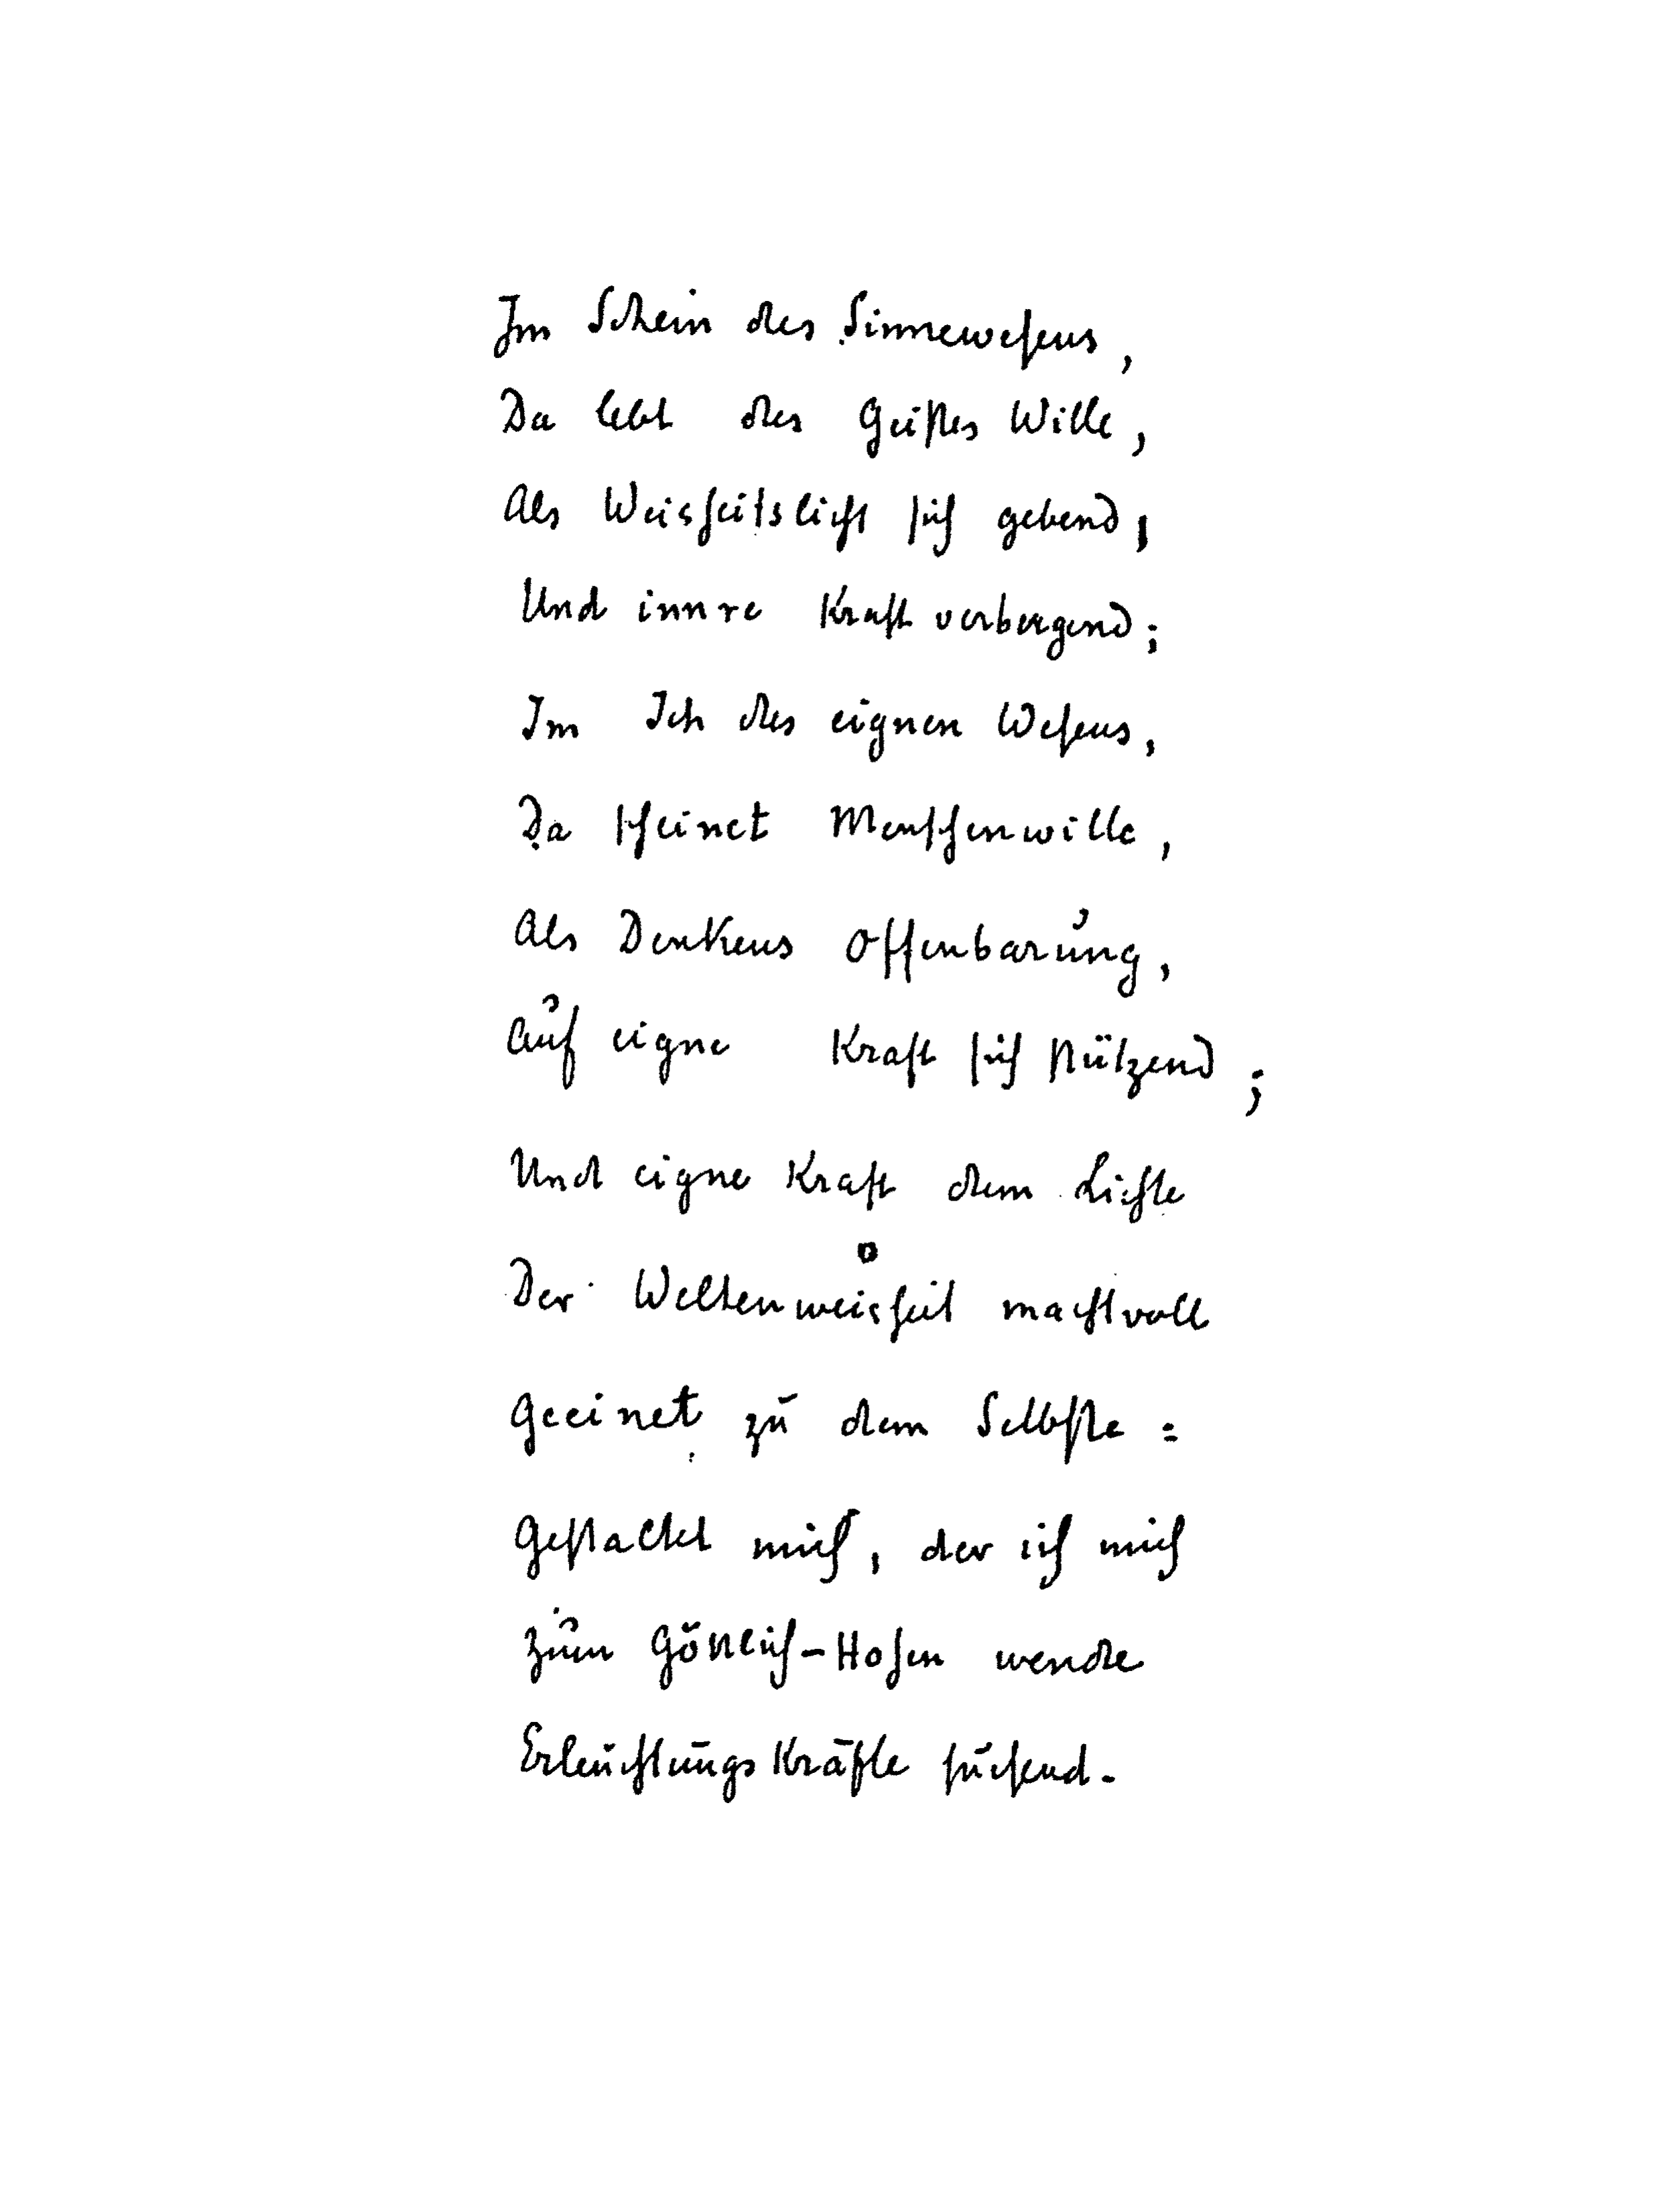 Im Schein des Sinnewesens,
Da lebt des Geistes Wille,
Als Weisheitslicht sich gebend,
Und innre Kraft verbergend;
Im Ich des eignen Wesens,
Da scheinet Menschenwille,
Als Denkens Offenbarung,
Auf eigne Kraft sich stützend;
Und eigne Kraft dem Lichte
Der Weltenweisheit machtvoll
Geeinet zu dem Selbste =
Gestaltet mich, der ich mich
Zum Göttlich-Hohen wende
Erleuchtungskräfte suchend.